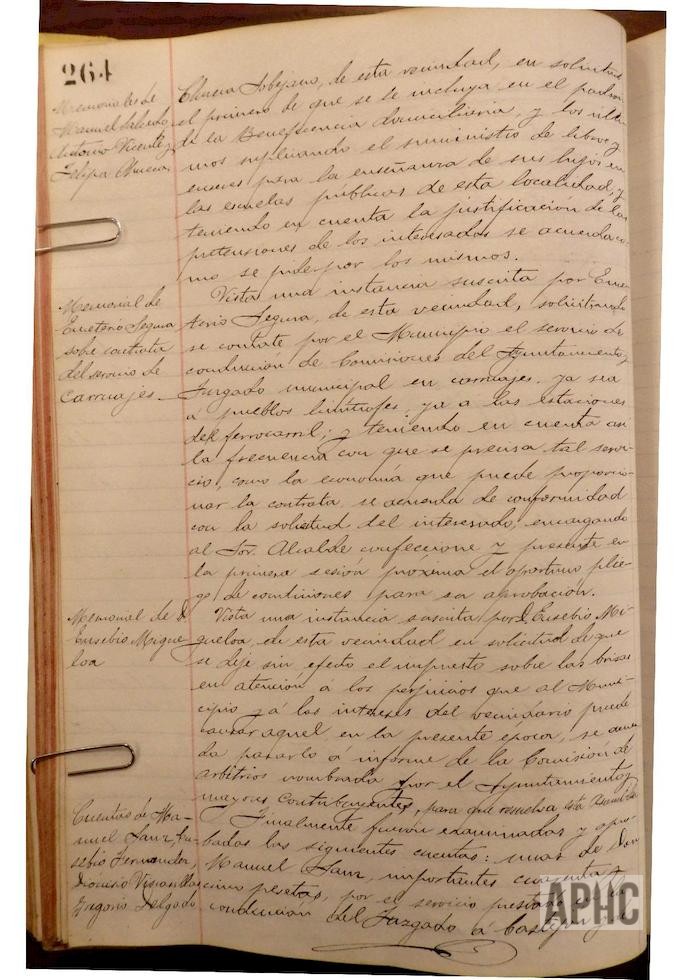 264
Memoriales de
Manuel Salcedo
Antonio Vicente y
Felipa Chueca
Chueca Lobejano, de esta vecindad, en solicitud
el primero de que se le incluya en el padrón
de la Beneficencia domiciliaria y los últi-
mos suplicando el suministro de libros y
enseres para la enseñanza de sus hijos en
las escuelas públicas de esta localidad, y
teniendo en cuenta la justificación de las
pretensiones de los interesados se acuerda co-
mo se pide por los mismos.
Memorial de
Emeterio Segura
sobre contrata
del servicio de
Carruajes.
Vista una instancia suscrita por Eme-
terio Segura, de esta vecindad, solicitando
se contrate por el Municipio el servicio de
conducción de Comisiones del Ayuntamiento y
Juzgado municipal en carruajes, ya sea
á pueblos limítrofes, ya a las estaciones
del ferrocarril; y teniendo en cuenta asi
la frecuencia con que se precisa tal servi-
cio, como la economía que puede proporcio-
nar la contrata, se acuerda de conformidad
con la solicitud del interesado, encargando
al Sor. Alcalde confeccione y presente en
la primera sesión próxima el oportuno plie-
go de condiciones para su aprobación.
Memorial de D.
Eusebio Migue-
loa
Vista una instancia suscrita por D. Eusebio Mi-
gueloa, de esta vecindad en solicitud de que
se deje sin efecto el impuesto sobre las brisas
en atención á los perjuicios que al Muni-
cipio y á los intereses del vecindario puede
causar aquel en la presente época, se acuer-
da pasarlo á informe de la Comisión de
arbitrios nombrada por el Ayuntamiento y
mayores contribuyentes, para que resuelva esta Asamblea
Cuentas de Ma-
nuel Sanz, Eu-
sebio Fernandez,
Dionisio
Gregorio Delgado
Finalmente fueron examinadas y apro-
badas las siguientes cuentas: unas de Don
Manuel Sanz, importantes cuarenta y
cinco pesetas, por el servicio prestado
conducción del Juzgado a
APHC